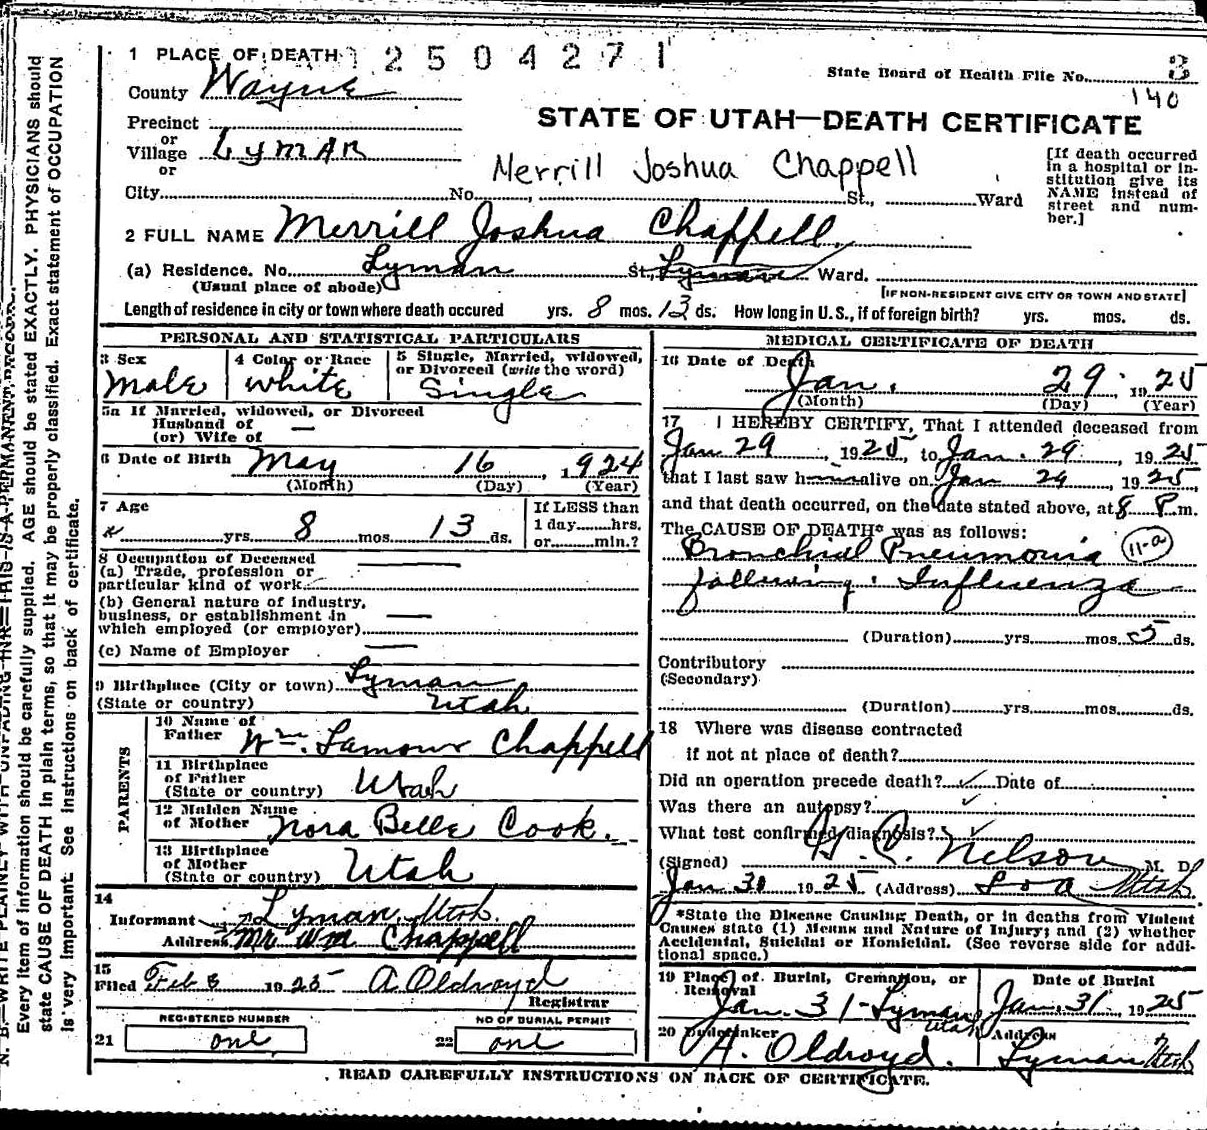 1 PLACE OF DEATH 2 5 0 4 2 7 1
State Board of Health File No. 3
140
County Wayne
STATE OF UTAH—DEATH CERTIFICATE
Precinct
or
Village Lyman
or
Merrill Joshua Chappell
City No. St., Ward
[If death occurred
in a hospital or in-
stitution give its
NAME instead of
street and num-
ber.]
2 FULL NAME Merrill Joshua Chappell
(a) Residence. No. Lyman St., Lyman Ward.
(Usual place of abode)
[IF NON-RESIDENT GIVE CITY OR TOWN AND STATE]
Length of residence in city or town where death occured yrs. 8 mos. 13 ds. How long in U. S., if of foreign birth? yrs. mos. ds.
PERSONAL AND STATISTICAL PARTICULARS
3 Sex
Male
4 Color or Race
white
5 Single, Married, widowed,
or Divorced (write the word)
Single
5a If Married, widowed, or Divorced
Husband of
(or) Wife of —
6 Date of Birth May 16, 1924
(Month) (Day) (Year)
7 Age
yrs. 8 mos. 13 ds.
If LESS than
1 day hrs.
or min.?
8 Occupation of Deceased
(a) Trade, profession or
particular kind of work
(b) General nature of industry,
business, or establishment in
which employed (or employer)
(c) Name of Employer
9 Birthplace (City or town) Lyman
(State or country) Utah
PARENTS
10 Name of
Father Wm. Lamour Chappell
11 Birthplace
of Father
(State or country) Utah
12 Maiden Name
of Mother Nora Belle Cook.
13 Birthplace
of Mother
(State or country) Utah
14
Informant Lyman, Utah.
Address Mr Wm Chappell
15
Filed Feb 8 1925 A Oldroyd
Registrar
REGISTERED NUMBER
21 one
NO OF BURIAL PERMIT
22 one
MEDICAL CERTIFICATE OF DEATH
16 Date of Death
Jan. 29, 1925
(Month) (Day) (Year)
17 I HEREBY CERTIFY, That I attended deceased from
Jan 29, 1925, to Jan. 29, 1925
that I last saw h alive on Jan 29, 1925,
and that death occurred, on the date stated above, at 8 P.m.
The CAUSE OF DEATH* was as follows:
Bronchial Pneumonia 11-a
following Influenza
(Duration) yrs. mos. 5 ds.
Contributory
(Secondary)
(Duration) yrs. mos. ds.
18 Where was disease contracted
if not at place of death?
Did an operation precede death? Date of
Was there an autopsy?
What test confirmed diagnosis?
(Signed) Nelson M. D.
Jan 30 1925 (Address) Loa Utah
*State the Disease Causing Death, or in deaths from Violent
Causes state (1) Means and Nature of Injury; and (2) whether
Accidental, Suicidal or Homicidal. (See reverse side for addi-
tional space.)
19 Place of Burial, Cremation, or
Removal
Jan. 31 - Lyman
Utah
Date of Burial
Jan. 31, 1925
20 Undertaker
A. Oldroyd.
Address
Lyman Utah
READ CAREFULLY INSTRUCTIONS ON BACK OF CERTIFICATE.
N. B.—WRITE PLAINLY WITH UNFADING INK—THIS IS A PERMANENT RECORD.
Every item of information should be carefully supplied. AGE should be stated EXACTLY. PHYSICIANS should
state CAUSE OF DEATH in plain terms, so that it may be properly classified. Exact statement of OCCUPATION
is very important. See instructions on back of certificate.